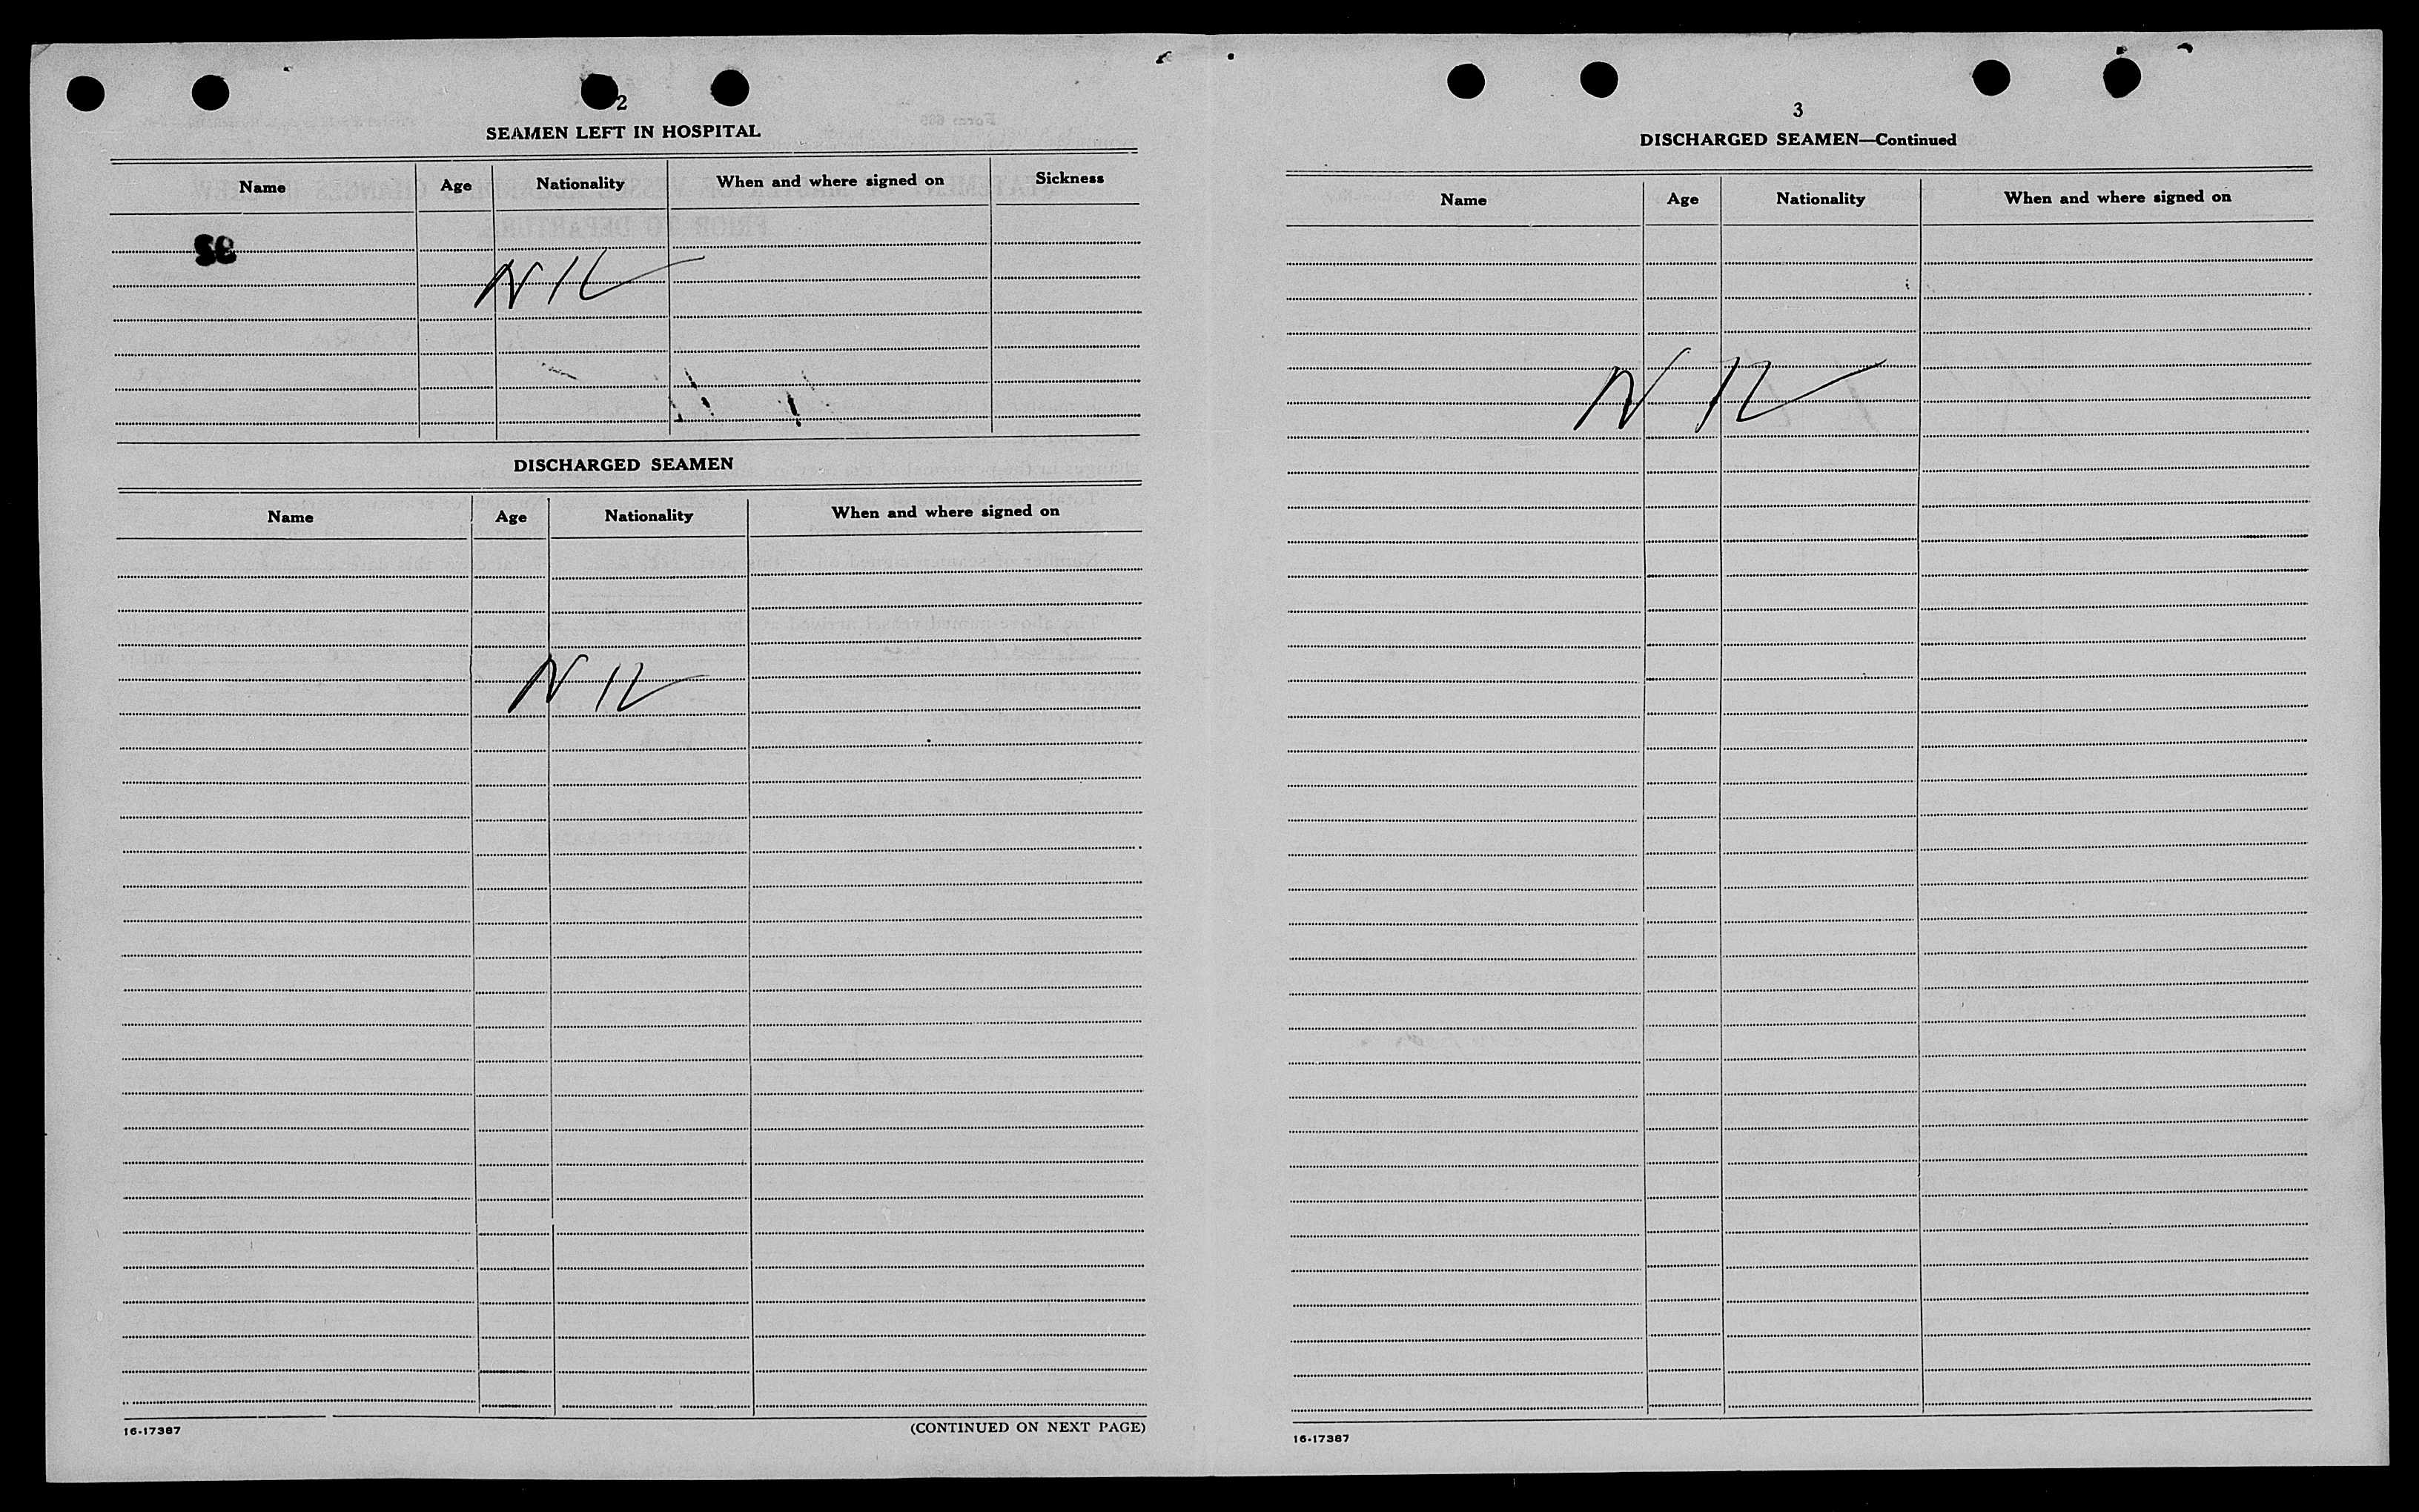 2
SEAMEN LEFT IN HOSPITAL
Name Age Nationality When and where signed on Sickness
NIL
DISCHARGED SEAMEN
Name Age Nationality When and where signed on
NIL
16-17387 (CONTINUED ON NEXT PAGE)
3
DISCHARGED SEAMEN—Continued
Name Age Nationality When and where signed on
NIL
16-17387